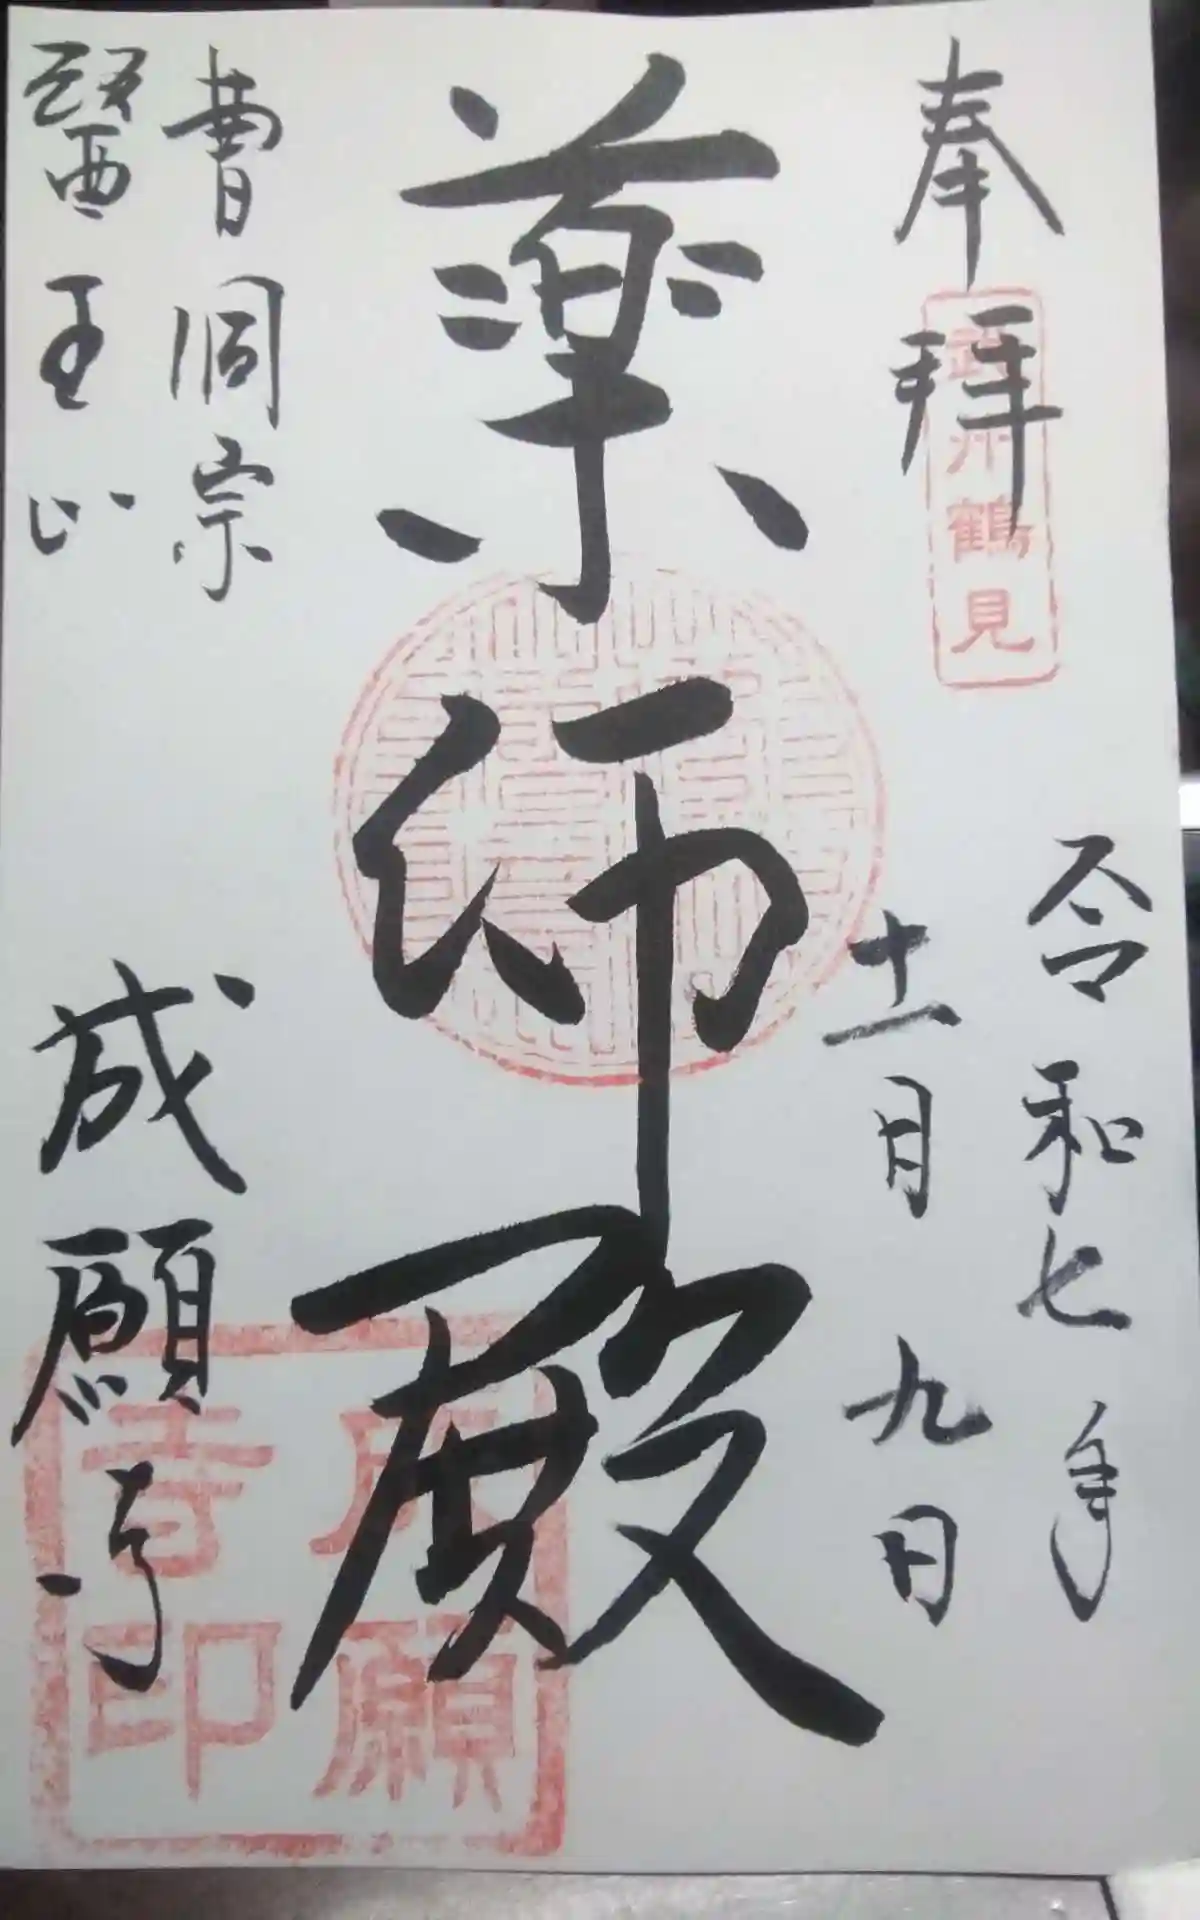 奉拝
武州鶴見
令和七年
十一月九日
薬師殿
曹洞宗
醫王山
成願寺
成願寺印